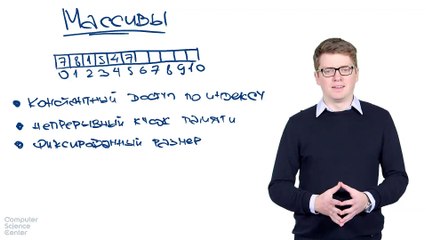 Массивы
7 8 1 5 4 7
0 1 2 3 4 5 6 7 8 9 10
• Константный доступ по индексу
• Непрерывный кусок памяти
• Фиксированный размер
Computer
Science
Center